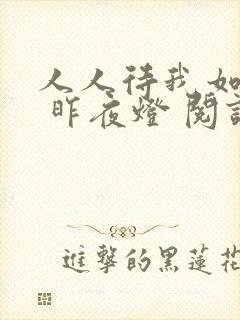 人人待我如
昨夜燈 閱
進擊的黑蓮花